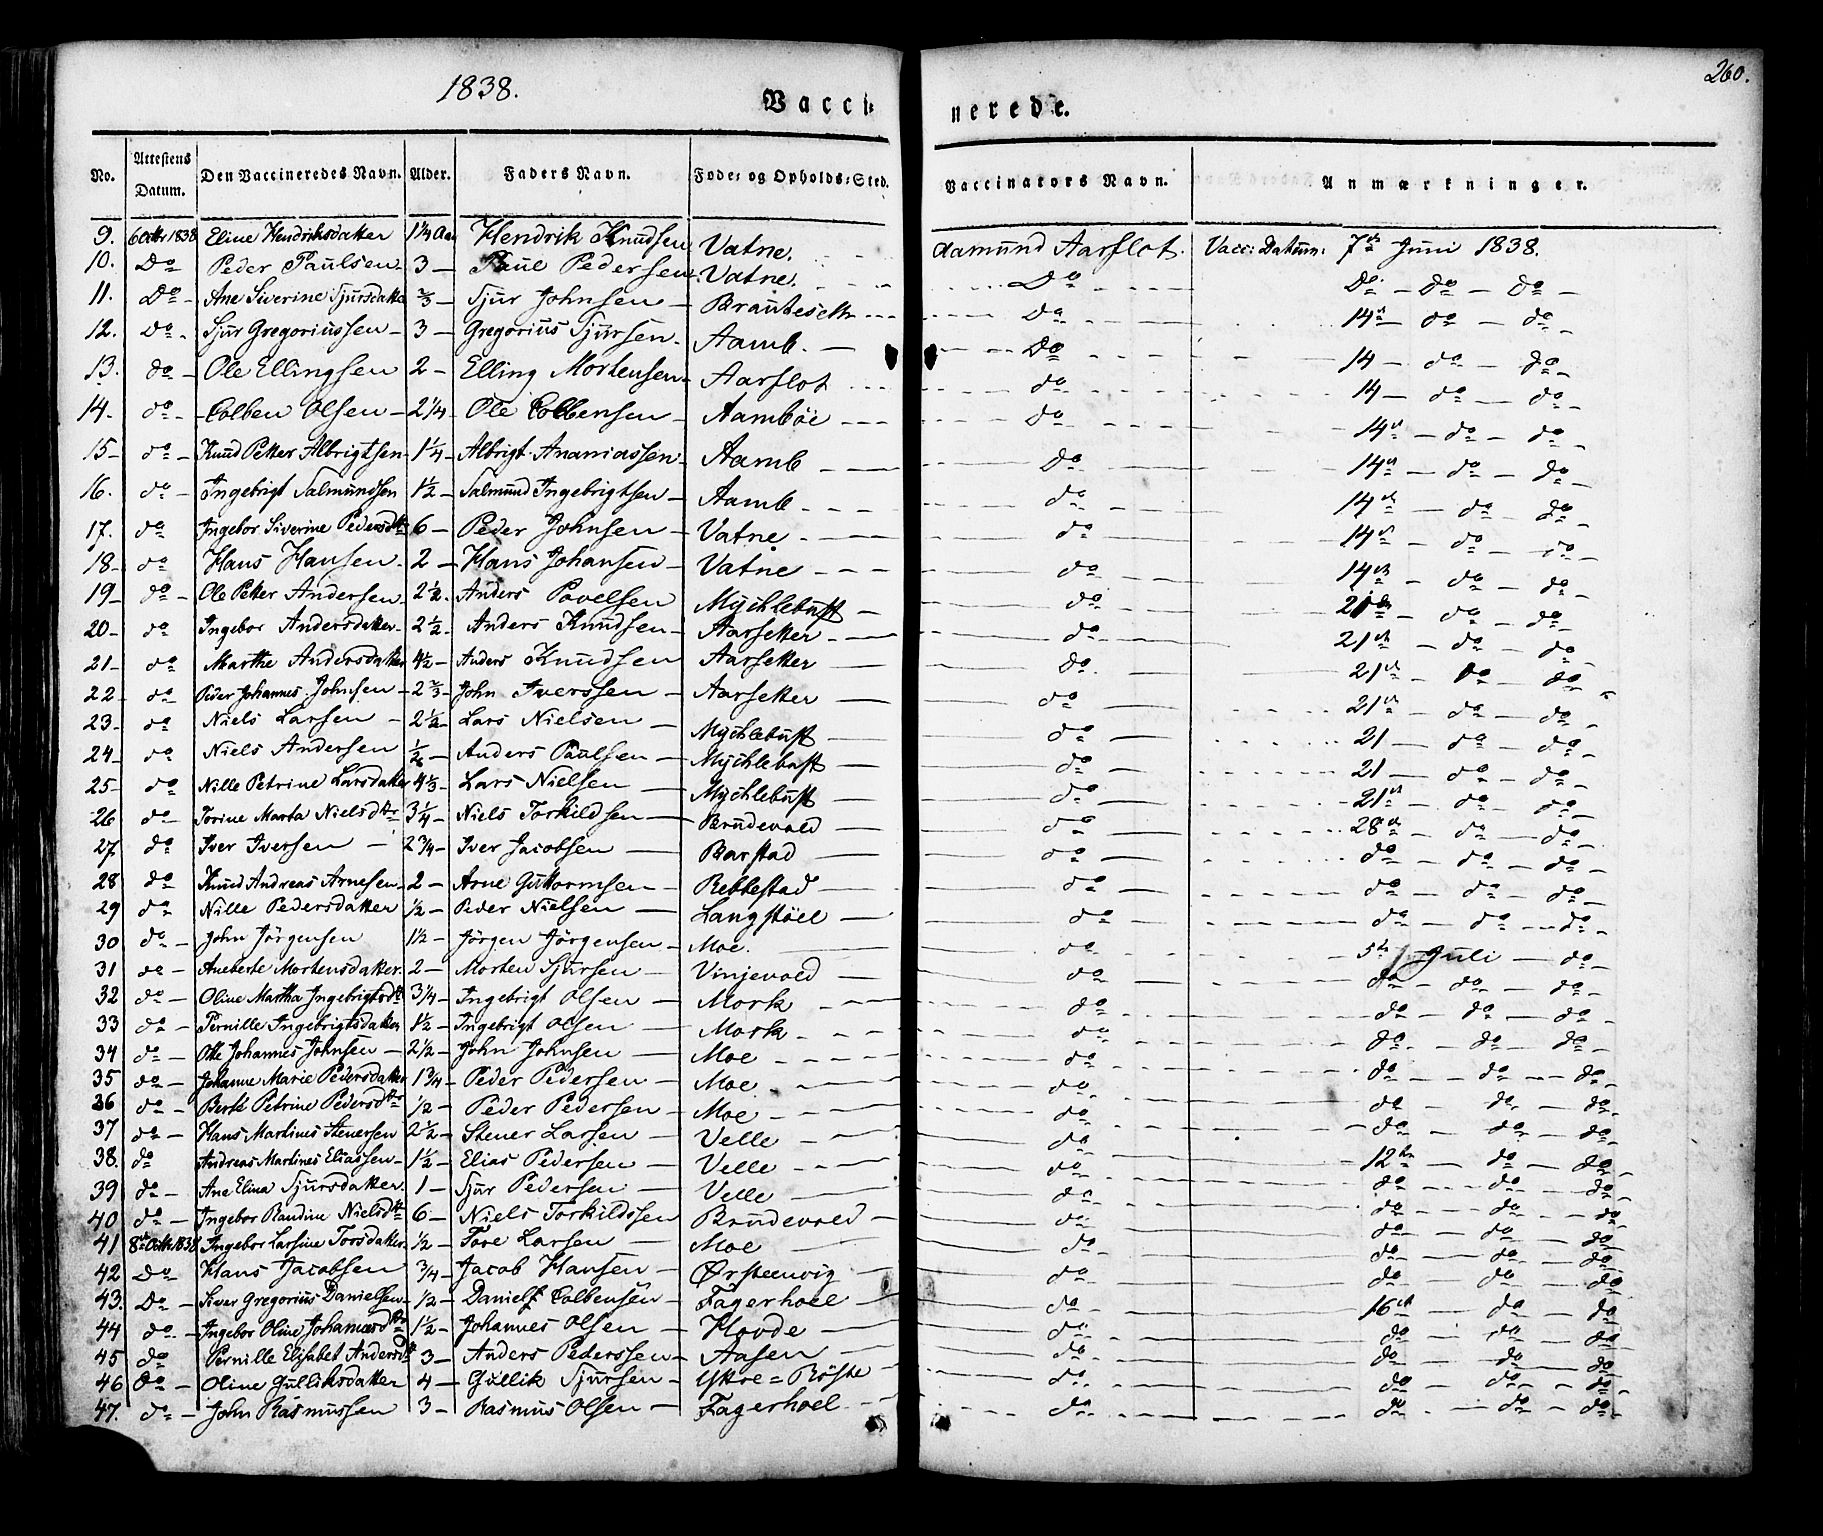 1838.
Vacci-
nerede.
260.
No. Attestens Datum. Den Vaccineredes Navn. Alder. Faders Navn. Føde- og Opholds-Sted. Vaccinators Navn. Anmærkninger.
9. 6 Octbr 1838 Eline Hendriksdatter 1 1/4 Aar Hendrik Knudsen Vatne. Aamund Aarflot. Vacc: Datum: 7de Juni 1838.
10. Do Peder Paulsen 3 — Paul Pedersen Vatne. Do Do — do — do —
11. Do Ane Siverine Sjursdatter 2/3 — Sjur Johnsen — Do 14de — do — do —
12. Do Sjur Gregoriussen — 3 — Gregorius Sjursen Aamb. — Do 14 — do — do —
13. do Ole Ellingsen 2 — Elling Mortensen Aarflot do 14 — do — do —
14. do Colben Olsen — 2 1/4 Ole Colbensen — Aambøe do 14de — do — do —
15 do Knud Petter Albrigtsen 1 1/4 Albrigt Ananiassen Aamb Do 14de — do — do —
16. do Ingebrigt Salmundsen 1 1/2 — Salmund Ingebrigtsen — Aamb do 14de — do — do —
17. do Ingebor Siverine Pedersdtr 6 — Peder Johnsen — Vatne do 14de — do — do —
18 do Hans Hansen 2 — Hans Johansen — Vatne do 14de — do — do —
19 do Ole Petter Andersen 2 1/2 Anders Povelsen Mychlebust — do 21de — do — do —
20 do Ingebor Andersdatter 2 1/2 Anders Knudsen — Aarsetter do 21de — do — do —
21 do Marthe Andersdatter 4 1/2 — Anders Knudsen Aarsetter — do 21de — do — do —
22 do Peder Johannes Johnsen 2 2/3 John Iverssen — Aarsetter — do 21de — do — do —
23 do Niels Larsen — 2 1/2 Lars Nielsen — Mychlebust — do 21 — do — do —
24 do Niels Andersen 1/2 — Anders Paulsen — Mychlebust — do 21 — do — do —
25 do Nille Petrine Larsdatter 4 1/3 Lars Nielsen — Mychlebust — do 21de — do — do —
26 do Torine Marta Nielsdtr 3 1/4 — Niels Torkildsen — Brudevold — do 28de — do — do —
27 do Iver Iversen — 2 3/4 — Iver Jacobsen — Barstad — do do — do — do —
28 do Knud Andreas Arnesen 2 — Arne Guttormsen — Rebbestad — do do — do — do —
29 do Nille Pedersdatter 1/2 — Peder Nielsen — Langstøel — do do — do — do —
30 do John Jörgensen 1 1/2 — Jörgen Jörgensen — Moe. do 5te Juli — do —
31 do Aneberte Mortensdatter 2 — Morten Sjursen — Vinjevold — do do — do — do —
32 do Oline Martha Ingebrigtsdtr 3 1/4 — Ingebrigt Olsen — Mork do do — do — do —
33 do Pernille Ingebrigtsdatter 1 1/2 — Ingebrigt Olsen — Mork do do — do — do —
34 do Otte Johannes Johnsen — 2 1/2 — John Johnsen — Moe do do — do — do —
35 do Johanne Marie Pedersdatter 1 3/4 — Peder Pedersen — Moe do do — do — do —
36 do Berte Petrine Pedersdtr 1/2 — Peder Pedersen — Moe do do — do — do —
37 do Hans Martines Stenersen 2 1/2 — Stener Larsen — Velle do 12te — do — do —
38. do Andreas Martines Eliassen 1 1/2 — Elias Pedersen — Velle do do — do — do —
39 do Ane Elina Sjursdatter 1 — Sjur Pedersen — Velle do do — do — do —
40 do Ingebor Randine Nielsdtr 6 — Niels Torkildssen Brudevold — do do — do — do —
41 8de Octbr 1838 Ingebor Larsine Torsdatter 1/2 — Tore Larsen — Moe do do — do — do —
42 Do Hans Jacobsen 3/4 — Jacob Hansen — Ørsteenvig do do — do — do —
43. Do Siver Gregorius Danielsen 1/2 — Daniel Colbensen — Fagerhoel — do 16de — do — do —
44 do Ingebor Oline Johannesdtr 1 1/2 — Johannes Olsen — Hovde — do do — do — do —
45 do Pernille Elisabet Andersdtr 3 — Anders Pederssen — Aasen — do do — do — do —
46 do Oline Gulliksdatter 4 — Gullik Sjursen — Yttre = Røste do do — do — do —
47. do John Rasmussen 3 — Rasmus Olsen — Fagerhoel do do — do — do —